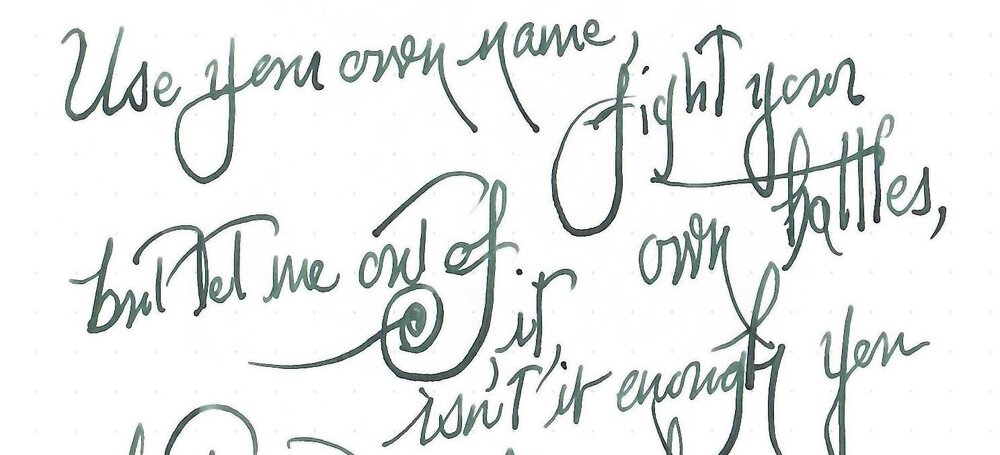 Use your own name, fight your
own battles,
but let me out of it,
isn't it enough you